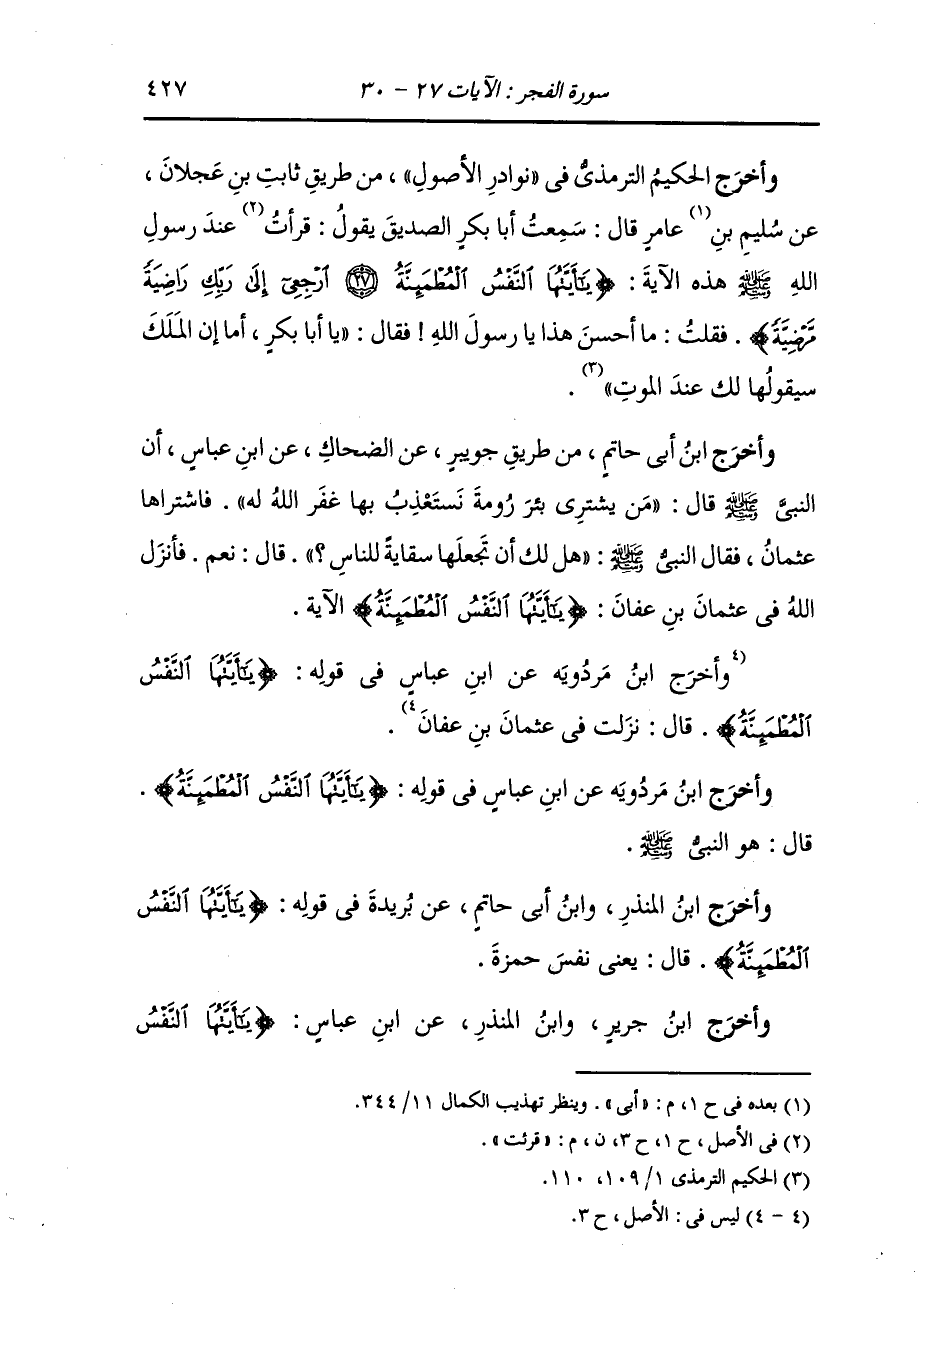 سورة الفجر : الآيات ٢٧ - ٣٠ ٤٢٧
وأخرَج الحكيمُ الترمذىُّ فى «نوادرِ الأصولِ» ، من طريقِ ثابتِ بنِ عَجلانَ ،
عن سُليمِ بنِ(١) عامرٍ قال : سَمِعتُ أبا بكرٍ الصديقَ يقولُ : قرأتُ(٢) عندَ رسولِ
اللهِ ﷺ هذه الآيةَ : ﴿يَٰٓأَيَّتُهَا ٱلنَّفْسُ ٱلْمُطْمَئِنَّةُ ۝٢٧ ٱرْجِعِىٓ إِلَىٰ رَبِّكِ رَاضِيَةً
مَّرْضِيَّةً﴾ . فقلتُ : ما أحسنَ هذا يا رسولَ اللهِ ! فقال : «يا أبا بكرٍ ، أما إن المَلَكَ
سيقولُها لك عندَ الموتِ»(٣) .
وأخرَج ابنُ أبى حاتمٍ ، من طريقِ جويبرٍ ، عن الضحاكِ ، عن ابنِ عباسٍ ، أن
النبىَّ ﷺ قال : «مَن يشترِى بئرَ رُومةَ نَستَعْذِبُ بها غفَر اللهُ له» . فاشتراها
عثمانُ ، فقال النبىُّ ﷺ : «هل لك أن تَجعلَها سقايةً للناسِ ؟» . قال : نعم . فأنزَل
اللهُ فى عثمانَ بنِ عفانَ : ﴿يَٰٓأَيَّتُهَا ٱلنَّفْسُ ٱلْمُطْمَئِنَّةُ﴾ الآية .
(٤وأخرَج ابنُ مَردُويَه عن ابنِ عباسٍ فى قولِه : ﴿يَٰٓأَيَّتُهَا ٱلنَّفْسُ
ٱلْمُطْمَئِنَّةُ﴾ . قال : نزَلت فى عثمانَ بنِ عفانَ٤) .
وأخرَج ابنُ مَردُويَه عن ابنِ عباسٍ فى قولِه : ﴿يَٰٓأَيَّتُهَا ٱلنَّفْسُ ٱلْمُطْمَئِنَّةُ﴾ .
قال : هو النبىُّ ﷺ .
وأخرَج ابنُ المنذرِ ، وابنُ أبى حاتمٍ ، عن بُريدةَ فى قولِه : ﴿يَٰٓأَيَّتُهَا ٱلنَّفْسُ
ٱلْمُطْمَئِنَّةُ﴾ . قال : يعنى نفسَ حمزةَ .
وأخرَج ابنُ جريرٍ ، وابنُ المنذرِ ، عن ابنِ عباسٍ : ﴿يَٰٓأَيَّتُهَا ٱلنَّفْسُ
(١) بعده فى ح ١، م : «أبى» . وينظر تهذيب الكمال ١١/ ٣٤٤.
(٢) فى الأصل ، ح ١، ح ٣، ن ، م : «قرئت» .
(٣) الحكيم الترمذى ١/ ١٠٩، ١١٠.
(٤ - ٤) ليس فى : الأصل ، ح ٣.